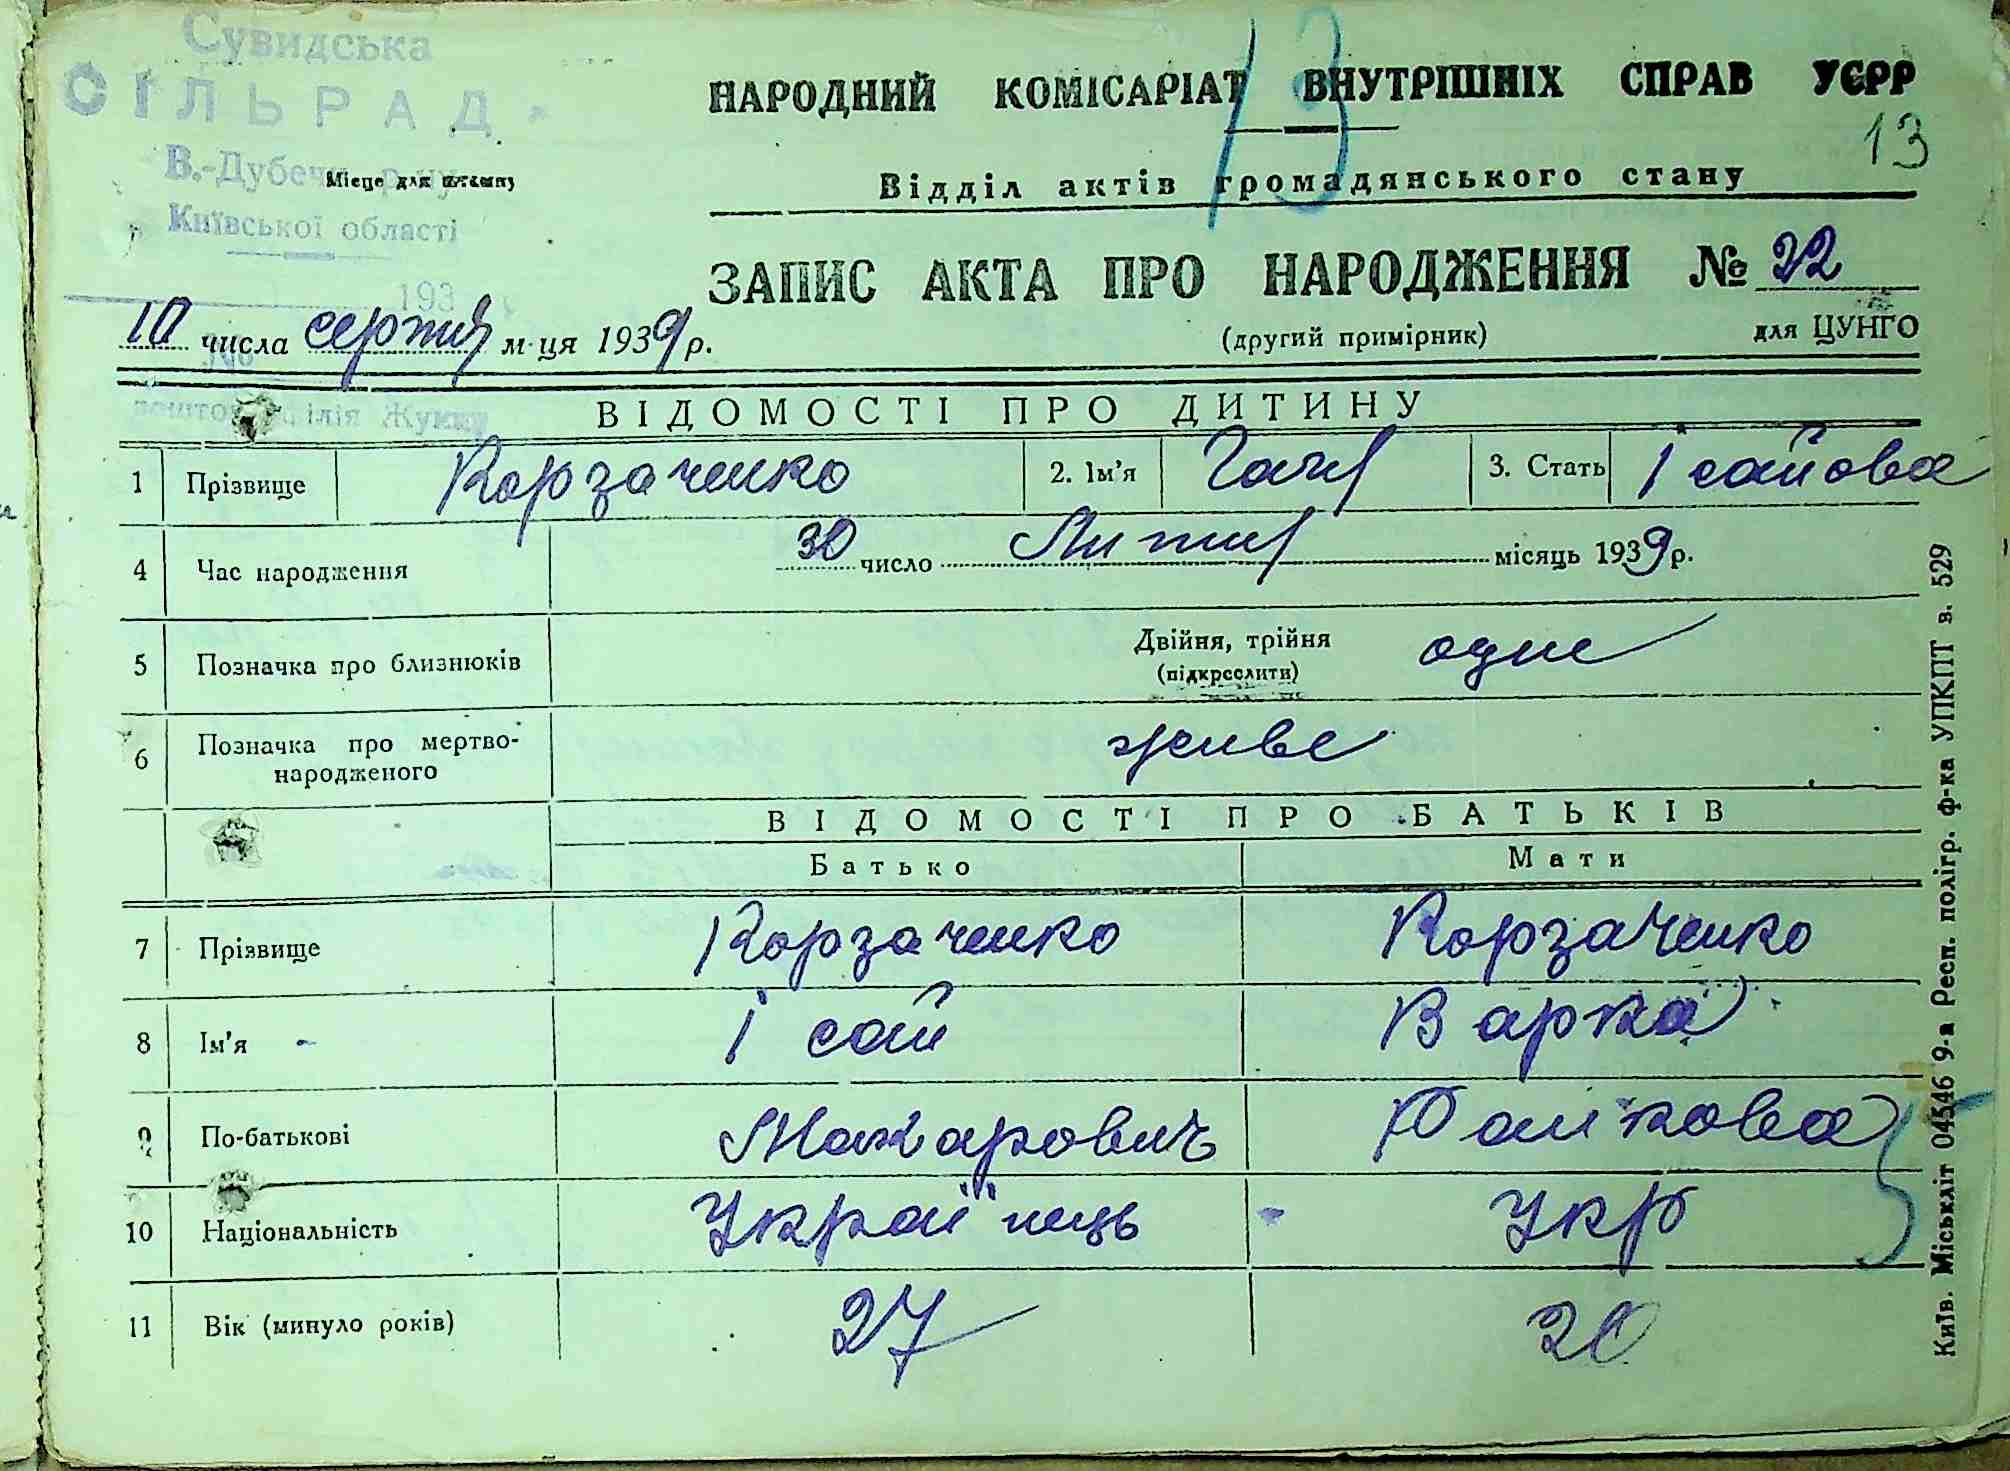 Сувидська
СІЛЬРАДА
В.-Дубеч
Київської області
193
Місце для штампу
13
НАРОДНИЙ КОМІСАРІАТ ВНУТРІШНІХ СПРАВ УСРР
13
Відділ актів громадянського стану
ЗАПИС АКТА ПРО НАРОДЖЕННЯ № 22
10 числа серпня м-ця 1939 р.
(другий примірник)
для ЦУНГО
ВІДОМОСТІ ПРО ДИТИНУ
1 Прізвище Корзаченко 2. Ім'я Галя 3. Стать Ісайова
4 Час народження 30 число Липня місяць 1939 р.
5 Позначка про близнюків Двійня, трійня (підкреслити) одне
6 Позначка про мертво-
народженого живе
ВІДОМОСТІ ПРО БАТЬКІВ
Батько Мати
7 Прізвище Корзаченко Корзаченко
8 Ім'я Ісай Варка
9 По-батькові Макарович
10 Національність Українець Укр
11 Вік (минуло років) 27 20
Київ. Міськліт 04546 9-а Респ. полігр. ф-ка УПКПТ в. 529